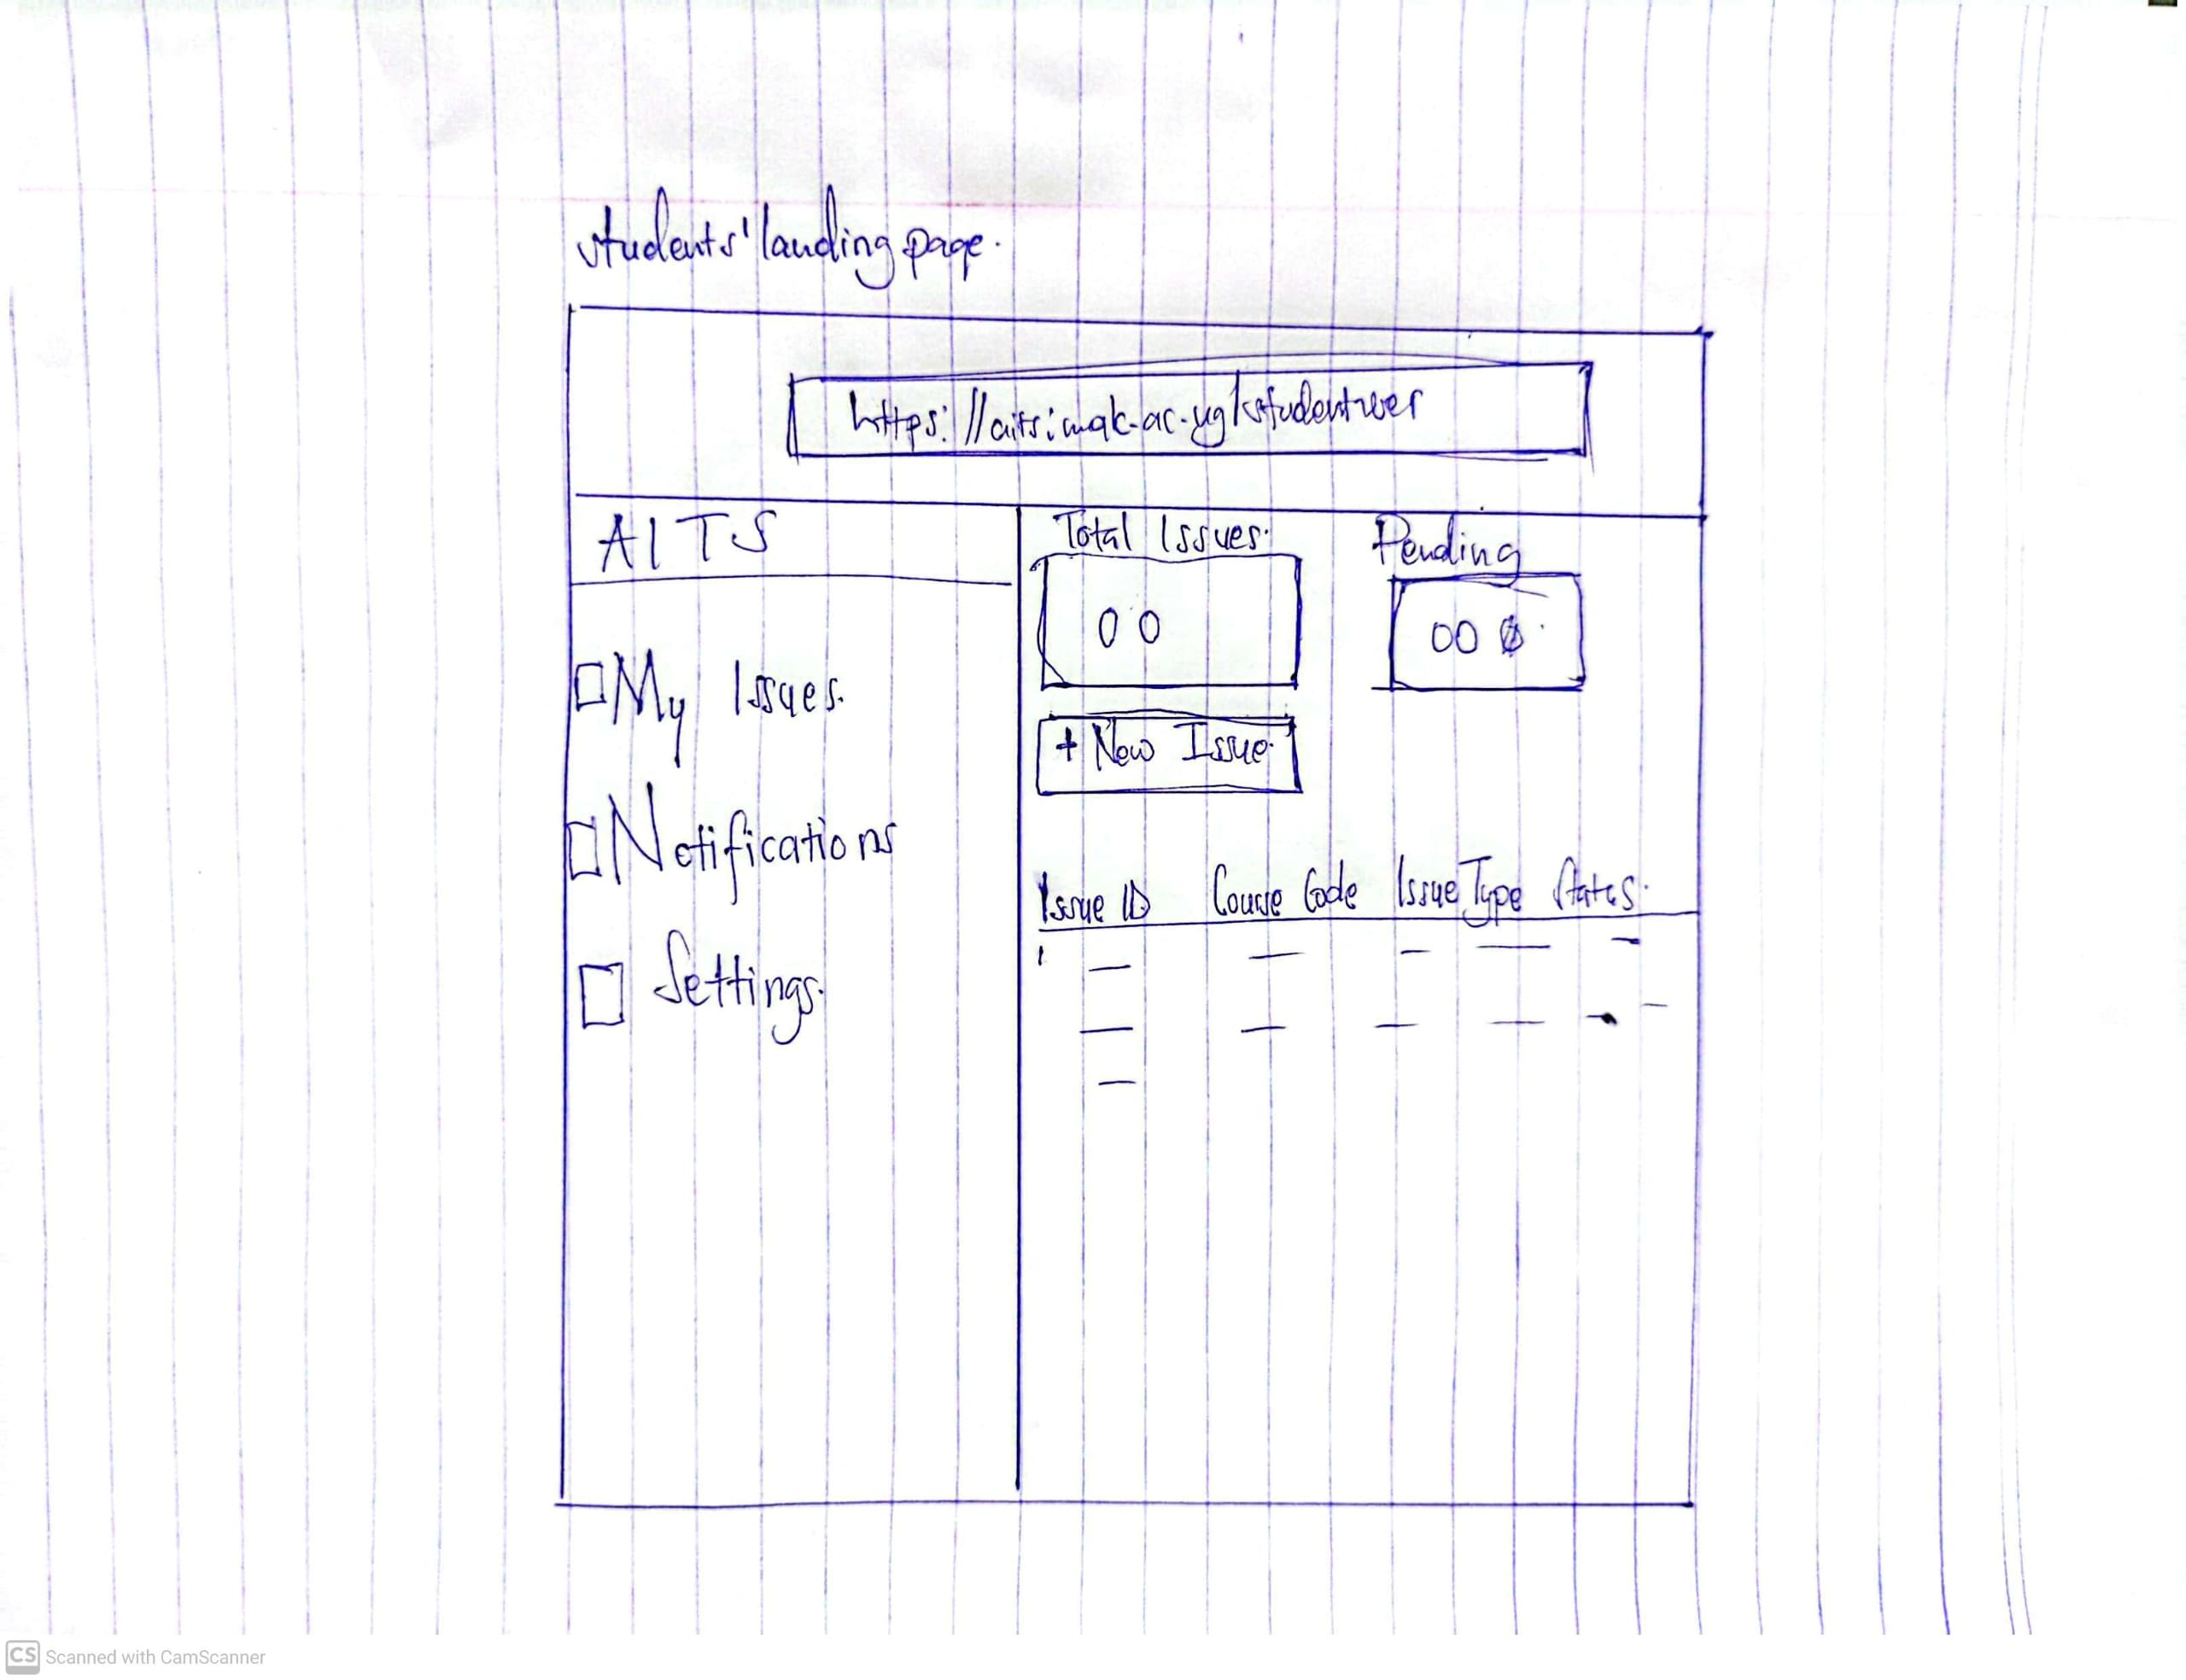 students' landing page.
https://aits.mak.ac.ug/studentuser
AITS
My Issues.
Notifications
Settings.
Total Issues.
00
Pending
00
+ New Issue.
Issue ID Course Code Issue Type Status.
CS Scanned with CamScanner